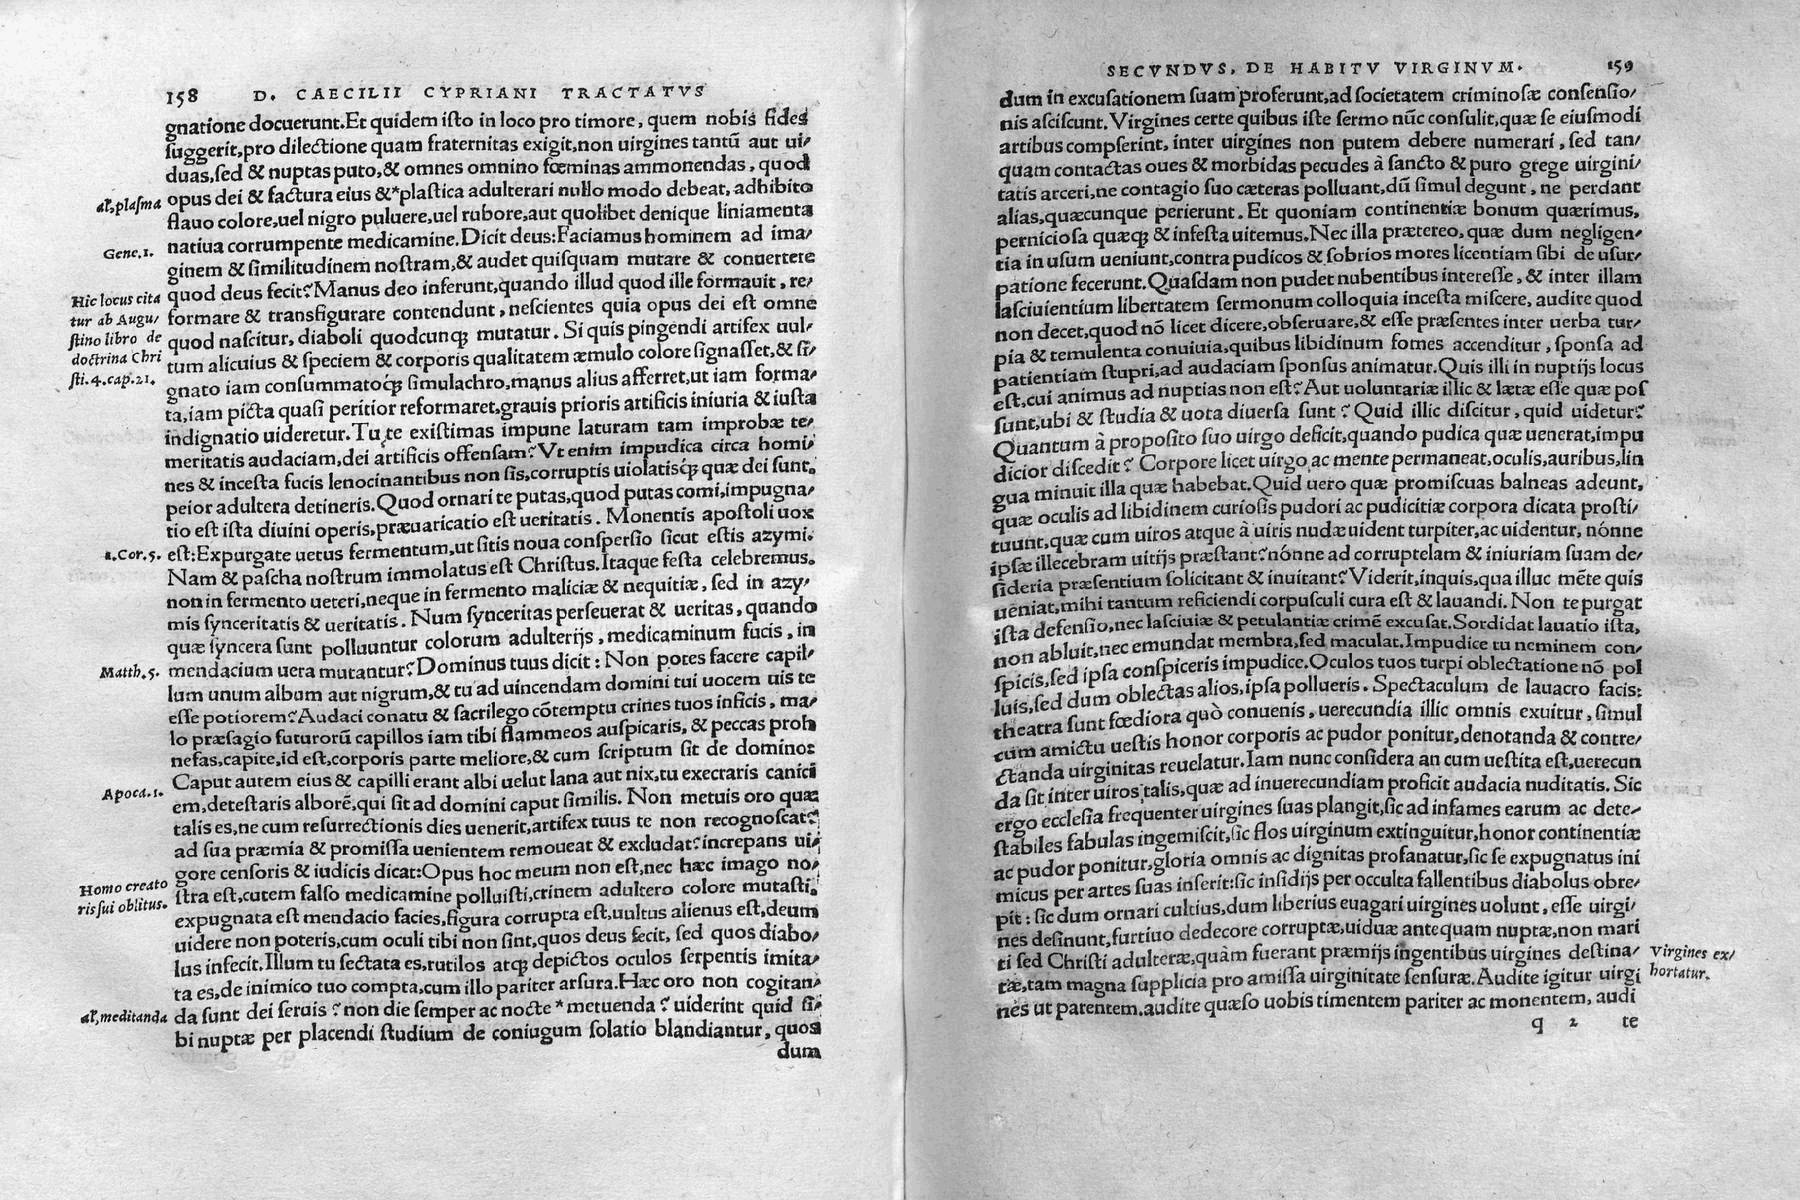 158 D. CAECILII CYPRIANI TRACTATVS
gnatione docuerunt.Et quidem isto in loco pro timore, quem nobis fides
suggerit,pro dilectione quam fraternitas exigit,non uirgines tantũ aut ui/
duas,sed & nuptas puto,& omnes omnino fœminas ammonendas, quod
al',plasma
opus dei & factura eius &*plastica adulterari nullo modo debeat, adhibito
flauo colore,uel nigro puluere,uel rubore,aut quolibet denique liniamenta
Gene.1.
natiua corrumpente medicamine.Dicit deus:Faciamus hominem ad ima/
ginem & similitudinem nostram,& audet quisquam mutare & conuertere
Hic locus cita
tur ab Augu/
stino libro de
doctrina Chri
sti.4.cap.21.
quod deus fecit?Manus deo inferunt,quando illud quod ille formauit, re/
formare & transfigurare contendunt, nescientes quia opus dei est omne
quod nascitur, diaboli quodcunq; mutatur. Si quis pingendi artifex uul/
tum alicuius & speciem & corporis qualitatem æmulo colore signasset,& si/
gnato iam consummatoq́; simulachro,manus alius afferret,ut iam forma/
ta,iam picta quasi peritior reformaret,grauis prioris artificis iniuria & iusta
indignatio uideretur.Tu te existimas impune laturam tam improbæ te/
meritatis audaciam,dei artificis offensam?Vt enim impudica circa homi/
nes & incesta fucis lenocinantibus non sis,corruptis uiolatisq́; quæ dei sunt,
peior adultera detineris.Quod ornari te putas,quod putas comi,impugna/
tio est ista diuini operis,præuaricatio est ueritatis. Monentis apostoli uox
1.Cor.5.
est:Expurgate uetus fermentum,ut sitis noua conspersio sicut estis azymi.
Nam & pascha nostrum immolatus est Christus.Itaque festa celebremus.
non in fermento ueteri,neque in fermento maliciæ & nequitiæ, sed in azy/
mis synceritatis & ueritatis. Num synceritas perseuerat & ueritas, quando
quæ syncera sunt polluuntur colorum adulterijs, medicaminum fucis, in
Matth.5.
mendacium uera mutantur?Dominus tuus dicit: Non potes facere capil/
lum unum album aut nigrum,& tu ad uincendam domini tui uocem uis te
esse potiorem?Audaci conatu & sacrilego cõtemptu crines tuos inficis, ma/
lo præsagio futurorũ capillos iam tibi flammeos auspicaris, & peccas proh
nefas,capite,id est,corporis parte meliore,& cum scriptum sit de domino:
Apoca.1.
Caput autem eius & capilli erant albi uelut lana aut nix,tu execraris canici
em,detestaris alborẽ,qui sit ad domini caput similis. Non metuis oro quæ
talis es,ne cum resurrectionis dies uenerit,artifex tuus te non recognoscat?
ad sua præmia & promissa uenientem remoueat & excludat?increpans ui/
Homo creato
ris sui oblitus.
gore censoris & iudicis dicat:Opus hoc meum non est,nec hæc imago no/
stra est,cutem falso medicamine polluisti,crinem adultero colore mutasti.
expugnata est mendacio facies,figura corrupta est,uultus alienus est,deum
uidere non poteris,cum oculi tibi non sint,quos deus fecit, sed quos diabo/
lus infecit.Illum tu sectata es,rutilos atq; depictos oculos serpentis imita/
ta es,de inimico tuo compta,cum illo pariter arsura.Hæc oro non cogitan/
al',meditanda
da sunt dei seruis? non die semper ac nocte * metuenda? uiderint quid si/
bi nuptæ per placendi studium de coniugum solatio blandiantur, quos
dum
SECVNDVS, DE HABITV VIRGINVM. 159
dum in excusationem suam proferunt,ad societatem criminosæ consensio/
nis asciscunt.Virgines certe quibus iste sermo nũc consulit,quæ se eiusmodi
artibus compserint, inter uirgines non putem debere numerari, sed tan/
quam contactas oues & morbidas pecudes à sancto & puro grege uirgini/
tatis arceri,ne contagio suo cæteras polluant,dũ simul degunt, ne perdant
alias,quæcunque perierunt. Et quoniam continentiæ bonum quærimus,
perniciosa quæq; & infesta uitemus.Nec illa prætereo, quæ dum negligen/
tia in usum ueniunt,contra pudicos & sobrios mores licentiam sibi de usur/
patione fecerunt.Quasdam non pudet nubentibus interesse, & inter illam
lasciuientium libertatem sermonum colloquia incesta miscere, audire quod
non decet,quod nõ licet dicere,obseruare,& esse præsentes inter uerba tur/
pia & temulenta conuiuia,quibus libidinum fomes accenditur, sponsa ad
patientiam stupri,ad audaciam sponsus animatur.Quis illi in nuptijs locus
est,cui animus ad nuptias non est?Aut uoluntariæ illic & lætæ esse quæ pos
sunt,ubi & studia & uota diuersa sunt? Quid illic discitur, quid uidetur?
Quantum à proposito suo uirgo deficit,quando pudica quæ uenerat,impu
dicior discedit? Corpore licet uirgo ac mente permaneat,oculis,auribus,lin
gua minuit illa quæ habebat.Quid uero quæ promiscuas balneas adeunt,
quæ oculis ad libidinem curiosis pudori ac pudicitiæ corpora dicata prosti/
tuunt,quæ cum uiros atque à uiris nudæ uident turpiter,ac uidentur, nónne
ipsæ illecebram uitijs præstant?nónne ad corruptelam & iniuriam suam de/
sideria præsentium solicitant & inuitant?Viderit,inquis,qua illuc mẽte quis
ueniat,mihi tantum reficiendi corpusculi cura est & lauandi. Non te purgat
ista defensio,nec lasciuiæ & petulantiæ crimẽ excusat.Sordidat lauatio ista,
non abluit,nec emundat membra,sed maculat.Impudice tu neminem con/
spicis,sed ipsa conspiceris impudice.Oculos tuos turpi oblectatione nõ pol
luis,sed dum oblectas alios,ipsa pollueris. Spectaculum de lauacro facis:
theatra sunt fœdiora quò conuenis, uerecundia illic omnis exuitur, simul
cum amictu uestis honor corporis ac pudor ponitur,denotanda & contre/
ctanda uirginitas reuelatur.Iam nunc considera an cum uestita est,uerecun
da sit inter uiros talis,quæ ad inuerecundiam proficit audacia nuditatis. Sic
ergo ecclesia frequenter uirgines suas plangit,sic ad infames earum ac dete/
stabiles fabulas ingemiscit,sic flos uirginum extinguitur,honor continentiæ
ac pudor ponitur,gloria omnis ac dignitas profanatur,sic se expugnatus ini
micus per artes suas inserit:sic insidijs per occulta fallentibus diabolus obre/
pit: sic dum ornari cultius,dum liberius euagari uirgines uolunt, esse uirgi/
nes desinunt,furtiuo dedecore corruptæ,uiduæ antequam nuptæ,non mari
ti sed Christi adulteræ,quàm fuerant præmijs ingentibus uirgines destina/
Virgines ex/
hortatur.
tæ,tam magna supplicia pro amissa uirginitate sensuræ.Audite igitur uirgi
nes ut parentem,audite quæso uobis timentem pariter ac monentem, audi
q 2 te